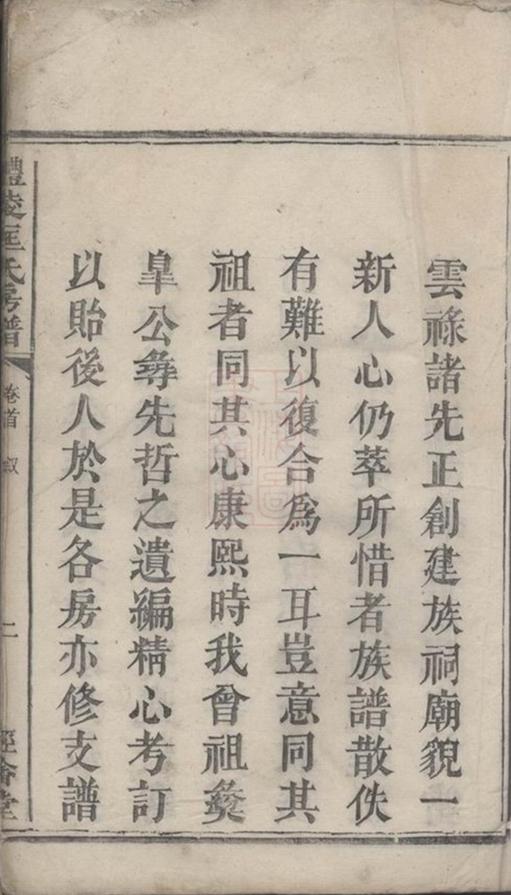 雲祿諸先正創建族祠廟貌一
新人心仍萃所惜者族譜散佚
有難以復合爲一耳豈意同其
祖者同其心康熙時我曾祖㷼
皐公尋先哲之遺編精心考訂
以貽後人於是各房亦修支譜
醴陵匡氏房譜
卷首 叙
二